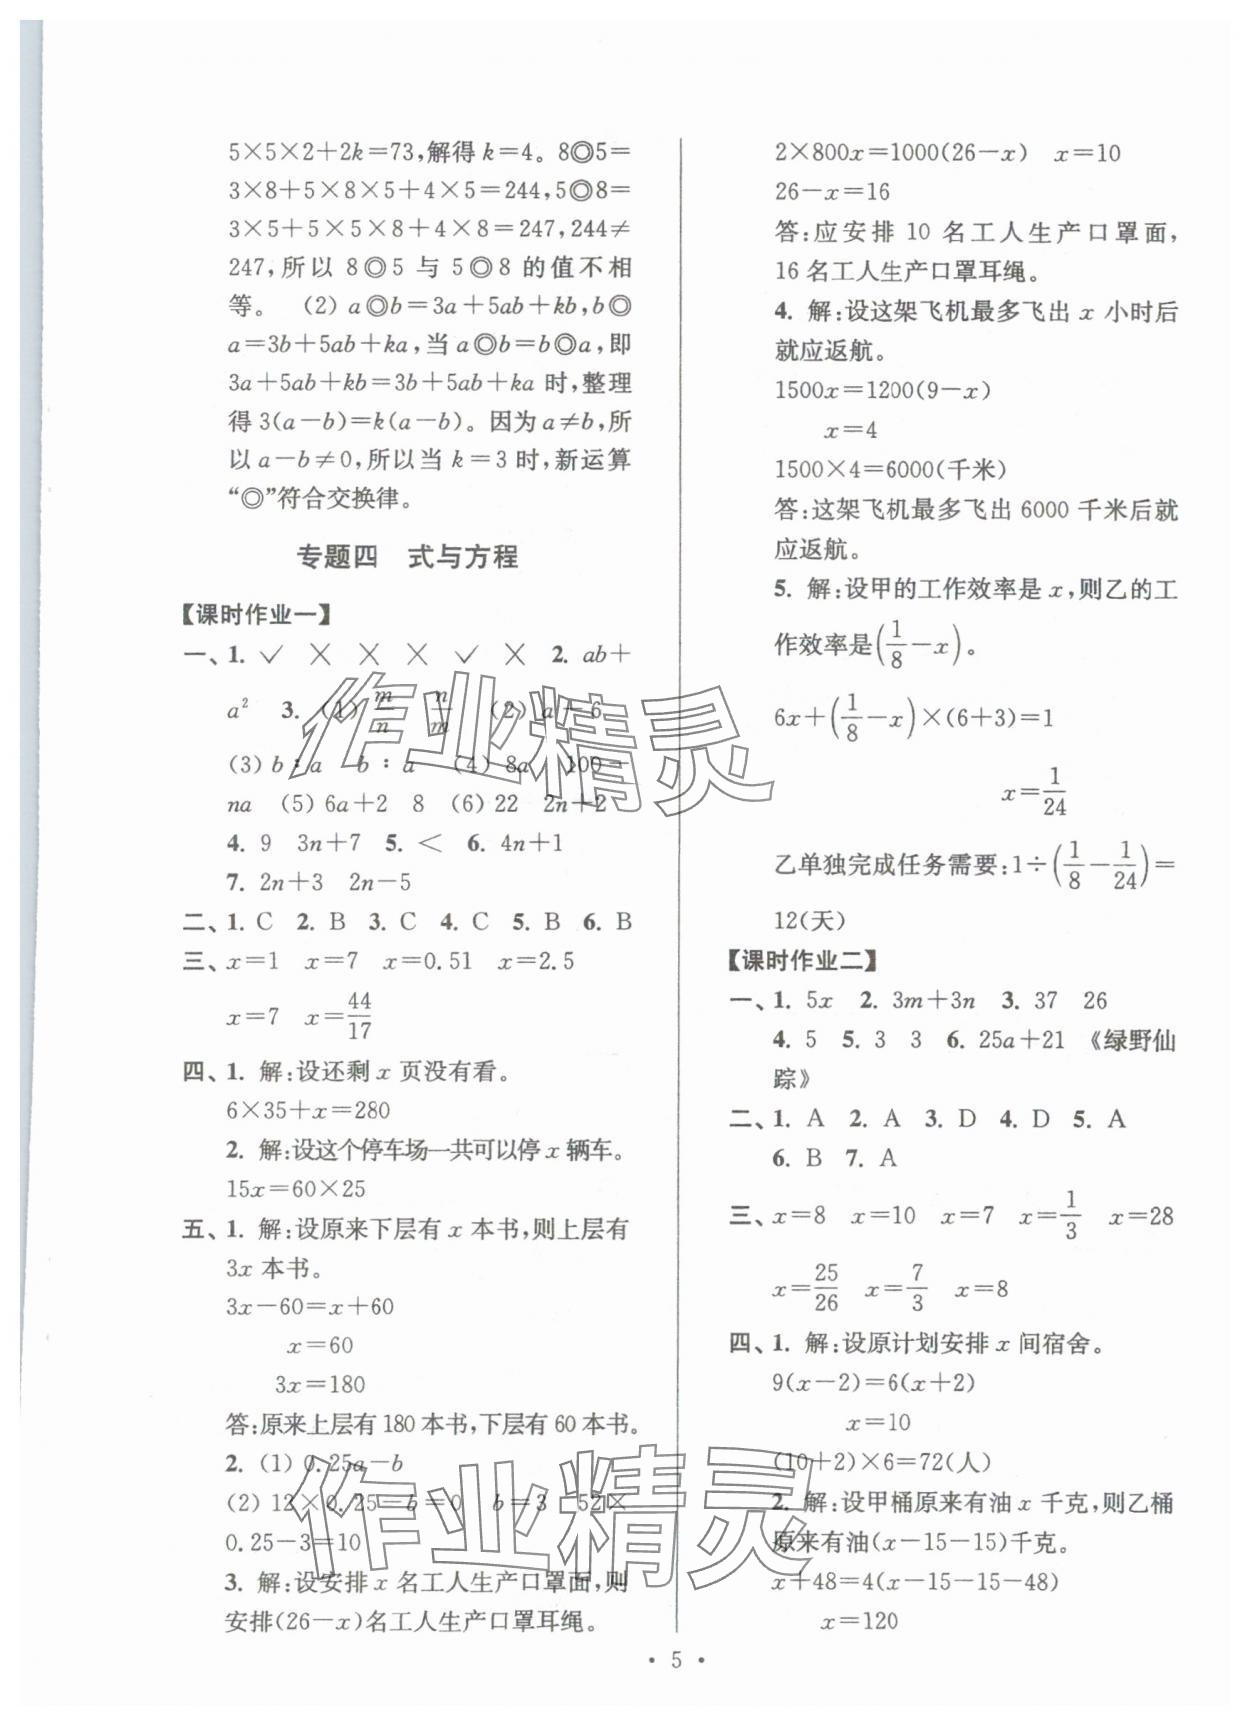 5×5×2+2k=73,解得 k=4。8◎5=
3×8+5×8×5+4×5=244,5◎8=
3×5+5×5×8+4×8=247,244≠
247,所以 8◎5 与 5◎8 的值不相
等。 (2) a◎b=3a+5ab+kb,b◎
a=3b+5ab+ka,当 a◎b=b◎a,即
3a+5ab+kb=3b+5ab+ka 时,整理
得 3(a-b)=k(a-b)。因为 a≠b,所
以 a-b≠0,所以当 k=3 时,新运算
“◎”符合交换律。
专题四 式与方程
【课时作业一】
一、1. ✓ × × × ✓ × 2. ab+
a² 3. (1) m/n n/m (2) a-6
(3) b∶a b∶a (4) 8a 100-
na (5) 6a+2 8 (6) 22 2n+2
4. 9 3n+7 5. < 6. 4n+1
7. 2n+3 2n-5
二、1. C 2. B 3. C 4. C 5. B 6. B
三、x=1 x=7 x=0.51 x=2.5
x=7 x=44/17
四、1. 解:设还剩 x 页没有看。
6×35+x=280
2. 解:设这个停车场一共可以停 x 辆车。
15x=60×25
五、1. 解:设原来下层有 x 本书,则上层有
3x 本书。
3x-60=x+60
x=60
3x=180
答:原来上层有 180 本书,下层有 60 本书。
2. (1) 0.25a-b
(2) 12×0.25-b=0 b=3 52×
0.25-3=10
3. 解:设安排 x 名工人生产口罩面,则
安排(26-x)名工人生产口罩耳绳。
2×800x=1000(26-x) x=10
26-x=16
答:应安排 10 名工人生产口罩面,
16 名工人生产口罩耳绳。
4. 解:设这架飞机最多飞出 x 小时后
就应返航。
1500x=1200(9-x)
x=4
1500×4=6000(千米)
答:这架飞机最多飞出 6000 千米后就
应返航。
5. 解:设甲的工作效率是 x,则乙的工
作效率是(1/8-x)。
6x+(1/8-x)×(6+3)=1
x=1/24
乙单独完成任务需要:1÷(1/8-1/24)=
12(天)
【课时作业二】
一、1. 5x 2. 3m+3n 3. 37 26
4. 5 5. 3 3 6. 25a+21 《绿野仙
踪》
二、1. A 2. A 3. D 4. D 5. A
6. B 7. A
三、x=8 x=10 x=7 x=1/3 x=28
x=25/26 x=7/3 x=8
四、1. 解:设原计划安排 x 间宿舍。
9(x-2)=6(x+2)
x=10
(10+2)×6=72(人)
2. 解:设甲桶原来有油 x 千克,则乙桶
原来有油(x-15-15)千克。
x+48=4(x-15-15-48)
x=120
· 5 ·
作业精灵
作业精灵